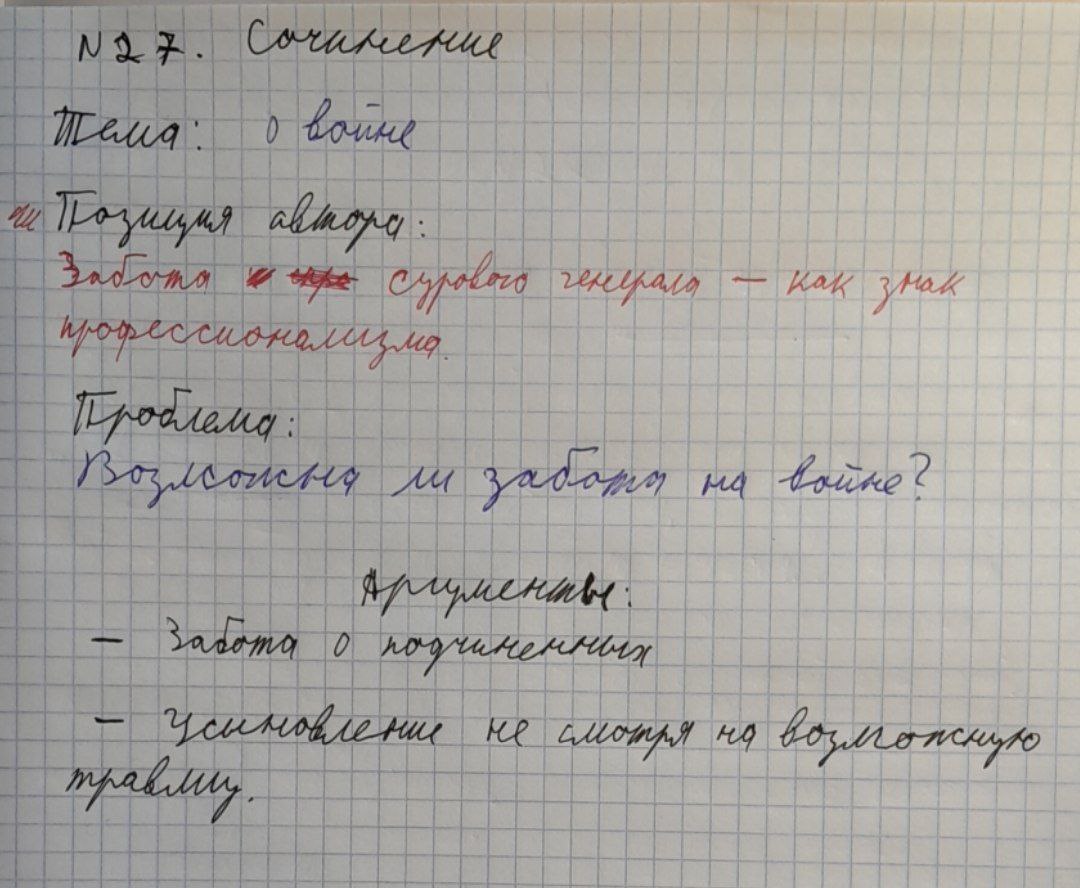 N27. Сочинение
Тема: о войне
Позиция автора:
Забота сурового генерала — как знак
профессионализма.
Проблема:
Возможна ли забота на войне?
Аргументы:
— Забота о подчиненных
— Усыновление не смотря на возможную
травму.